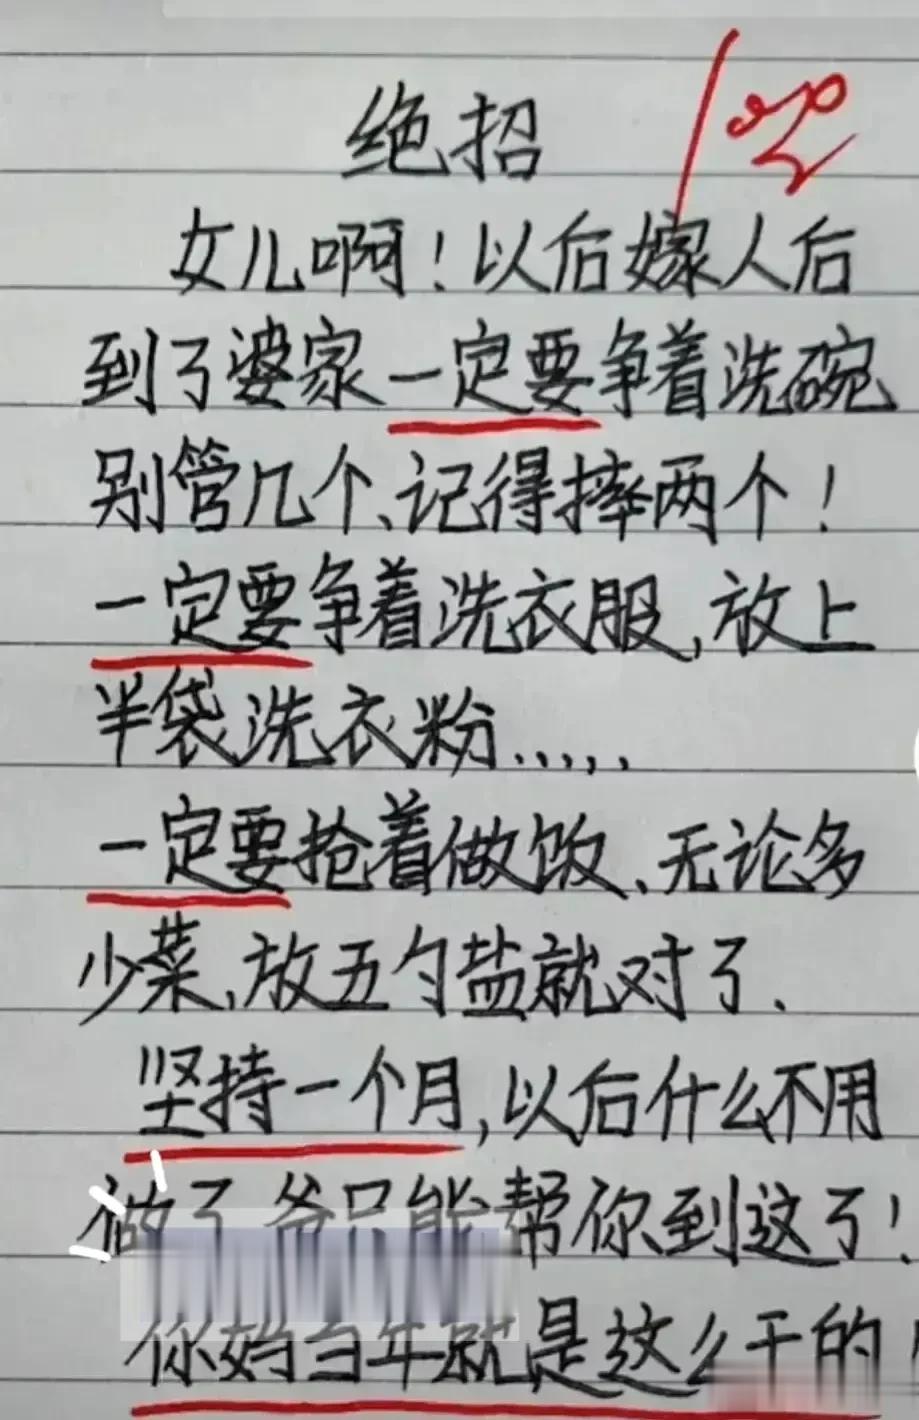 绝招
100
女儿啊！以后嫁人后
到了婆家一定要争着洗碗
别管几个、记得摔两个！
一定要争着洗衣服，放上
半袋洗衣粉.....
一定要抢着做饭、无论多
少菜，放五勺盐就对了.
坚持一个月，以后什么不用
做了 爸只能帮你到这了！
你妈当年就是这么干的！